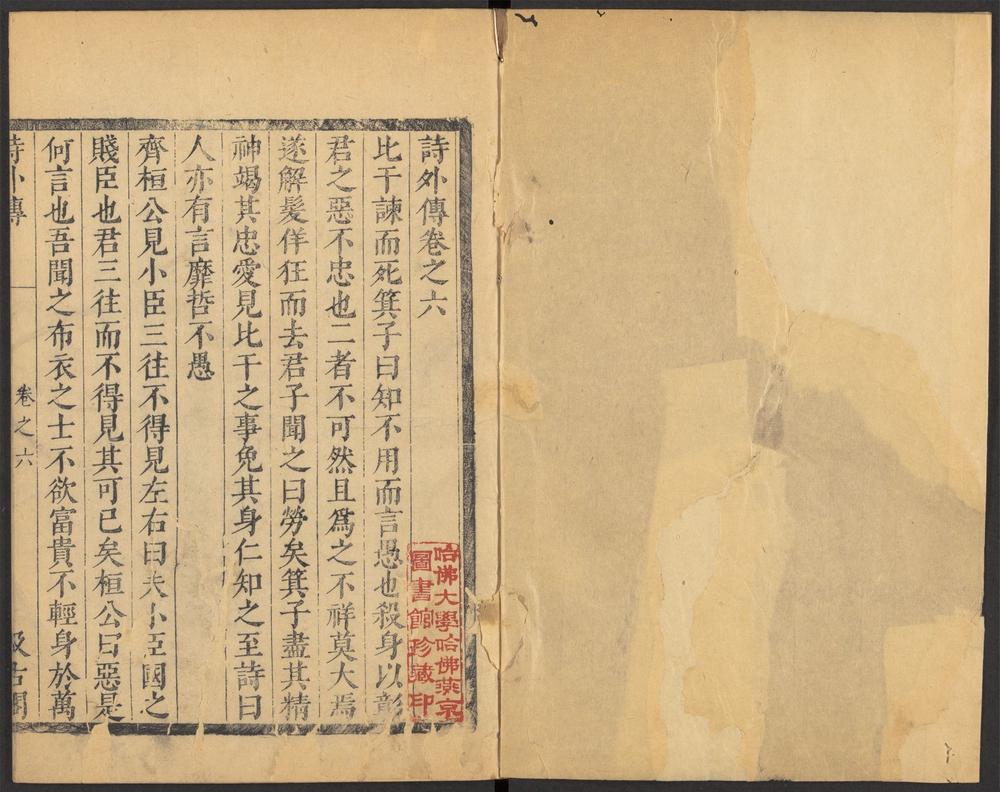 詩外傳卷之六
比干諫而死箕子曰知不用而言愚也殺身以彰
君之惡不忠也二者不可然且爲之不祥莫大焉
遂解髮佯狂而去君子聞之曰勞矣箕子盡其精
神竭其忠愛見比干之事免其身仁知之至詩曰
人亦有言靡哲不愚
齊桓公見小臣三往不得見左右曰夫小臣國之
賤臣也君三往而不得見其可已矣桓公曰惡是
何言也吾聞之布衣之士不欲富貴不輕身於萬
詩外傳 卷之六 汲古閣
哈佛大學哈佛燕京
圖書館珍藏印